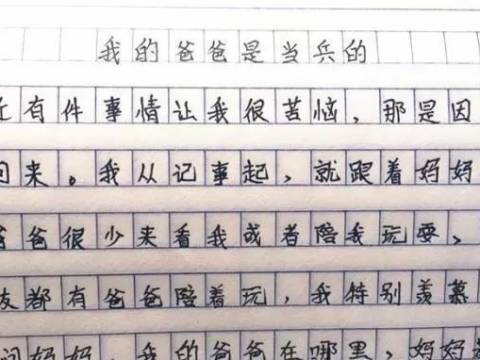 我的爸爸是当兵的
近有件事情让我很苦恼，那是因
回来。我从记事起，就跟着妈妈
爸爸很少来看我或者陪我玩耍、
友都有爸爸陪着玩，我特别羡慕
问妈妈，我的爸爸在哪里，妈妈